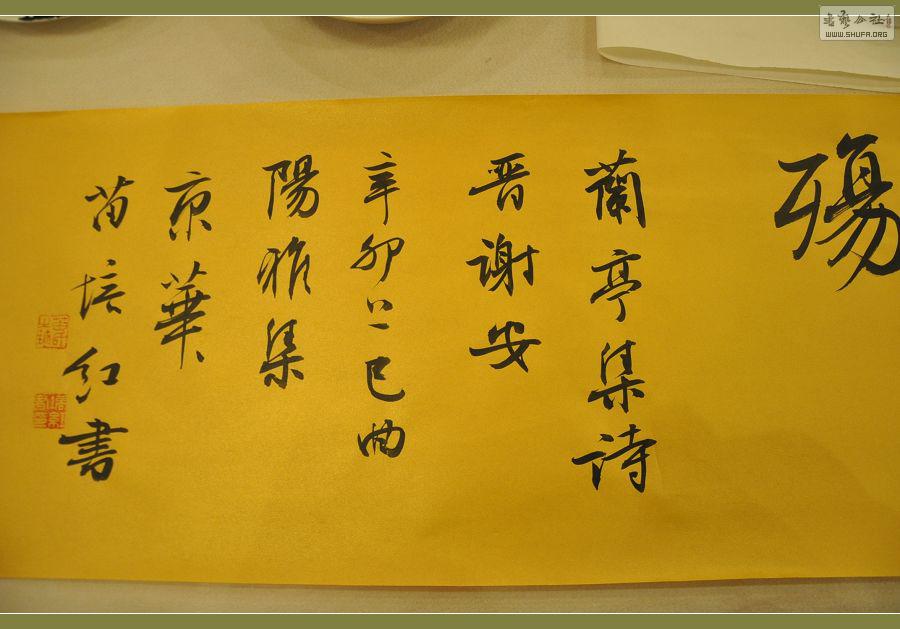 殤
蘭亭集詩
晉謝安
辛卯上巳曲
陽雅集
京華
苗培红書
書藝公社
WWW.SHUFA.ORG